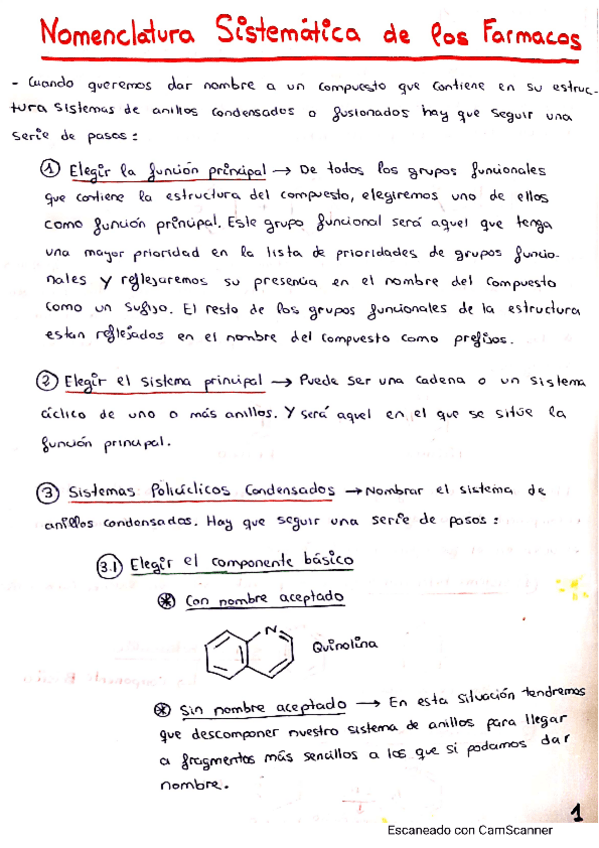 Nomenclatura Sistemática de los Farmacos
- Cuando queremos dar nombre a un compuesto que contiene en su estruc-
tura sistemas de anillos condensados o fusionados hay que seguir una
serie de pasos:
1 Elegir la función principal → De todos los grupos funcionales
que contiene la estructura del compuesto, elegiremos uno de ellos
como función principal. Este grupo funcional será aquel que tenga
una mayor prioridad en la lista de prioridades de grupos funcio-
nales y reflejaremos su presencia en el nombre del compuesto
como un sufijo. El resto de los grupos funcionales de la estructura
estan reflejados en el nombre del compuesto como prefijos.
2 Elegir el sistema principal → Puede ser una cadena o un sistema
cíclico de uno o más anillos. Y será aquel en el que se sitúe la
función principal.
3 Sistemas Policíclicos Condensados → Nombrar el sistema de
anillos condensados. Hay que seguir una serie de pasos:
3.1 Elegir el componente básico
* Con nombre aceptado
N
Quinolina
* Sin nombre aceptado → En esta situación tendremos
que descomponer nuestro sistema de anillos para llegar
a fragmentos más sencillos a los que si podamos dar
nombre.
1
Escaneado con CamScanner